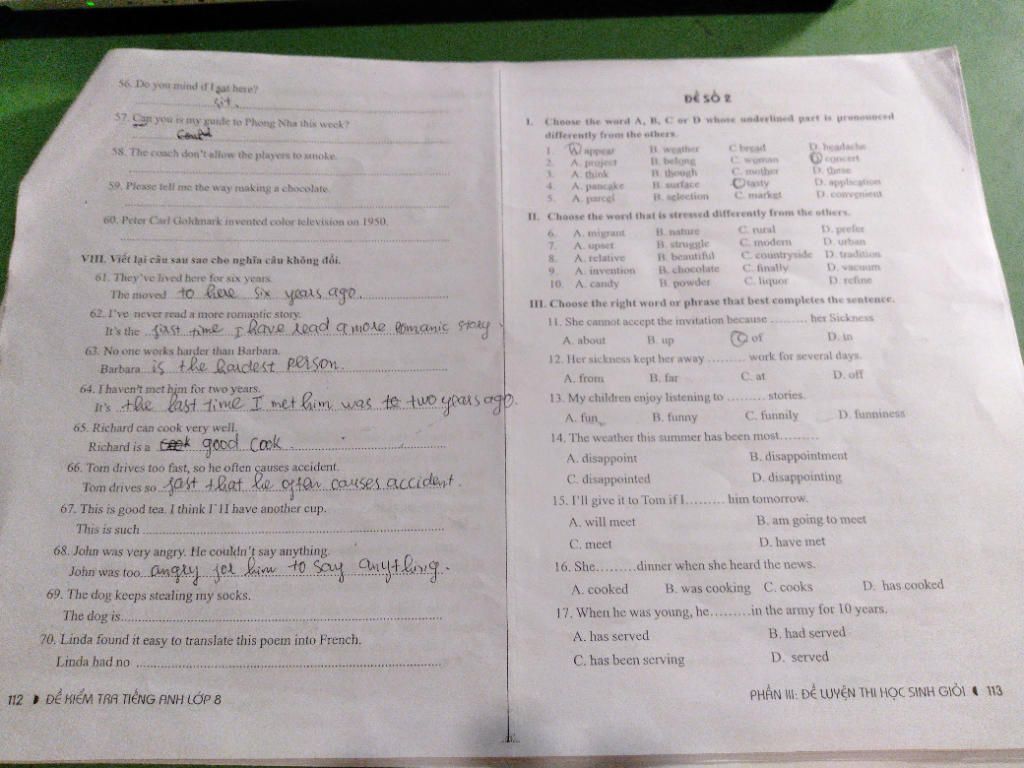 56. Do you mind if I sat here?
sit.
57. Can you is my guide to Phong Nha this week?
Could
58. The coach don't allow the players to smoke.
59. Please tell me the way making a chocolate.
60. Peter Carl Goldmark invented color television on 1950.
VIII. Viết lại câu sau sao cho nghĩa câu không đổi.
61. They've lived here for six years.
The moved to here six years ago.
62. I've never read a more romantic story.
It's the first time I have read a more romanic story.
63. No one works harder than Barbara.
Barbara is the hardest person.
64. I haven't met him for two years.
It's the last time I met him was to two years ago.
65. Richard can cook very well.
Richard is a good cook.
66. Tom drives too fast, so he often causes accident.
Tom drives so fast that he often causes accident.
67. This is good tea. I think I'll have another cup.
This is such
68. John was very angry. He couldn't say anything.
John was too angry for him to say anything.
69. The dog keeps stealing my socks.
The dog is
70. Linda found it easy to translate this poem into French.
Linda had no
112 ĐỀ KIỂM TRA TIẾNG ANH LỚP 8
ĐỀ SỐ 2
I. Choose the word A, B, C or D whose underlined part is pronounced
differently from the others.
1. A. appear B. weather C bread D. headache
2. A. project B. belong C. woman D. concert
3. A. think B. though C. mother D. these
4. A. pancake B. surface C. tasty D. application
5. A. parcel B. selection C. market D. convenient
II. Choose the word that is stressed differently from the others.
6. A. migrant B. nature C. rural D. prefer
7. A. upset B. struggle C. modern D. urban
8. A. relative B. beautiful C. countryside D. tradition
9. A. invention B. chocolate C. finally D. vacuum
10. A. candy B. powder C. liquor D. refine
III. Choose the right word or phrase that best completes the sentence.
11. She cannot accept the invitation because ......... her Sickness
A. about B. up C. of D. in
12. Her sickness kept her away ......... work for several days.
A. from B. far C. at D. off
13. My children enjoy listening to ......... stories.
A. fun B. funny C. funnily D. funniness
14. The weather this summer has been most.........
A. disappoint B. disappointment
C. disappointed D. disappointing
15. I'll give it to Tom if I......... him tomorrow.
A. will meet B. am going to meet
C. meet D. have met
16. She.........dinner when she heard the news.
A. cooked B. was cooking C. cooks D. has cooked
17. When he was young, he.........in the army for 10 years.
A. has served B. had served
C. has been serving D. served
PHẦN III: ĐỀ LUYỆN THI HỌC SINH GIỎI 113